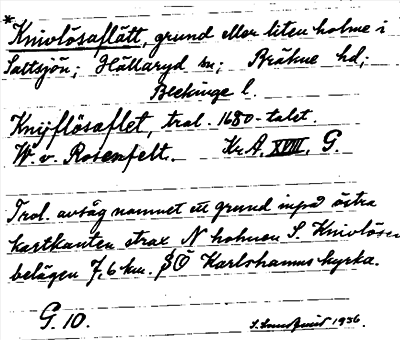 *Knivlösaflätt, grund eller liten holme i
Saltsjön; Hällaryd sn; Bräkne hd;
Blekinge l.
Knijflösaflet, trol. 1680-talet.
W. v. Rosenfelt. Kr. A. XVIII. G.
Trol. avsåg namnet ett grund inpå östra
kartkanten strax N holmen S. Knivlösa
belägen 7,6 km. SÖ Karlshamns kyrka.
G. 10.
1936.